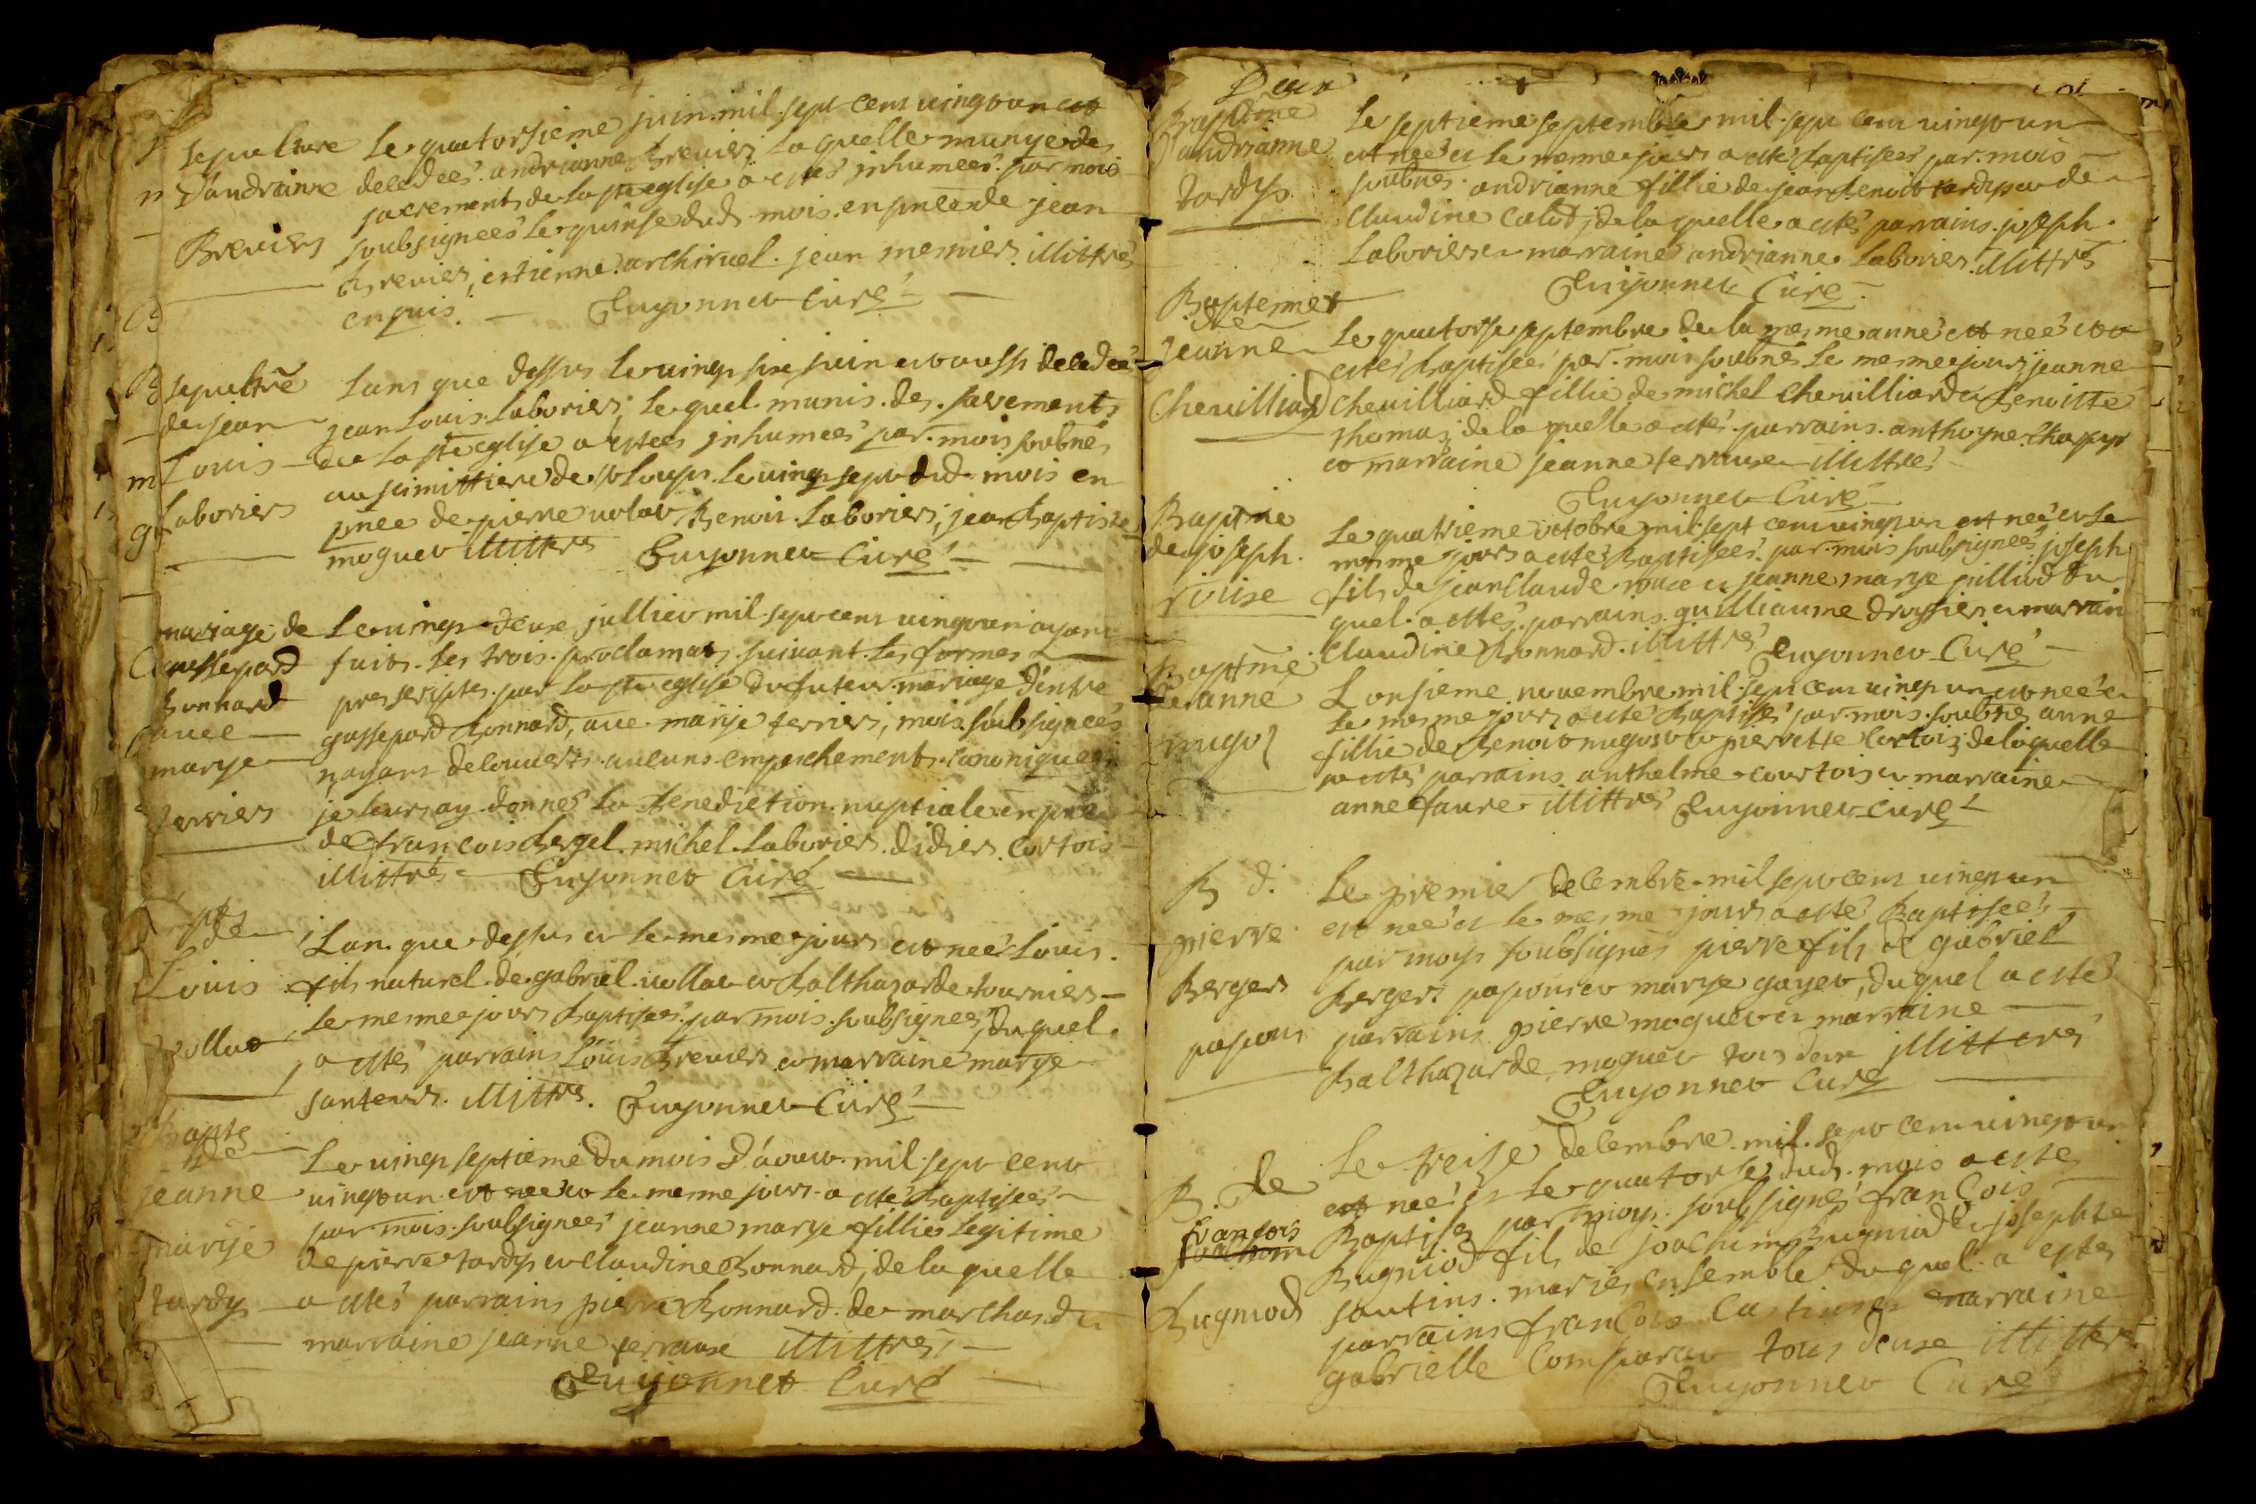 sepulture
D'andrianne
Breviers
Le quatorsieme juin mil sept cens vingt un est
decedeé andrianne Brevier, laquelle munye des
sacrements de la ste eglise a estes inhumeés par mois
soubsigneés le quinse dud mois en pnce de jean
Brevier, estienne archiruel jean mesnier illittrés
enquis. Guyonnet Curé
sepultre
de jean
Louis
Laboriers
Lans que dessus le vingt sixe juin est aussi decedeé
jean Louis Laborier, lequel munis des sacrements
de la ste eglise a estees inhumeés par mois soubnés
au simittiere de st loup le vingt sept dud mois en
pnce de pierre volat Benoit Laboriers, jean Baptiste
moguet illittrés Guyonnet Curé
mariage de
Gassepard
Bonnard
avec
marye
terriers
Le vingt deux julliet mil sept cens vingt un ayant
faits les trois proclamats suivant les formes
prescriptes par la ste eglise du futeur mariage d'entre
gassepard Bonnard, avec marye terrier, mois soubsigneés
n'ayans decouverts aucuns empeschements canoniques
je leurs ay donnés la Benediction nuptiale en pnce
de françois Bergel michel Laboriers didiers Cortois
illittrés Guyonnet Curé
de
Louis
Vollat
Lan que dessus et le mesme jours est neé Louis
fils naturel de gabriel vollat et Balthazarde tourniers
le mesme jours Baptiseés par mois soubsigneés, du quel
a estés parrains Louis Breviers et marraine marye
santeurs illittrs. Guyonnet Curé
Bapte
de
jeanne
marye
tardys
Le vingt septieme du mois d'aout mil sept cent
vingt un est neé et le mesme jours a esté Baptiseés
par mois soubsigneés jeanne marye fillie legitime
de pierre tardys et Claudine Bonnard, de la quelle
a estés parrains pierre Bonnard de marchas d et
marraine jeanne terraux illittrés
Guyonnet Curé
Deux
Baptme
D'andrianne
tardys
Le septieme septembre mil sept cens vingt un
est neé et le mesme jours a esté Baptiseés par mois
soubnés andrianne fillie de jean Benoit tardys et de
Claudine Calod, de la quelle a estés parrains joseph
Laborier et marraine andrianne Laborier illittrés
Guyonnet Curé
Baptemes
de
jeanne
Chevilliard
Le quatorse septembre de la mesme anneé est neé et
estés Baptiseés par mois soubnés le mesme jours jeanne
Chevilliard fillie de michel Chevilliard et Benoitte
thomas, de la quelle a estés parrains anthoyne Chapuy
et marraine jeanne terraux illittrés
Guyonnet Curé
Baptme
de joseph
Le quatrieme octobre mil sept cens vingt un est neé et le
mesme jours a estés Baptiseés par mois soubsigneés joseph
fils de jean Claude et jeanne marye du
quel a estés parrains guilliaume et marrain
Claudine Bonnard illittrés Guyonnet Curé
Baptme
de anne
nugos
L onsieme novembre mil sept cens vingt un est neé et
le mesme jours a esté Baptisés par mois soubnés anne
fillie de Benoit nugos et pierrette Cortois, de laquelle
a estés parrains anthelme courtois et marraine
anne faure illittrés Guyonnet Curé
B d.
pierre
Bergers
papons
Le premier decembre mil sept cens vingt un
est neé et le mesme jours a esté Baptiseés
par moys soubsignés pierre fils de gabriel
Berger papons et marye gayet, du quel a esté
parrains pierre moguet et marraine
Balthazarde moguet tous deux illitterés
Guyonnet Curé
B. de
françois
Bugniod
Le treize decembre mil sept cens vingt un
est neé et le quatorse dud mois a esté
Baptisé par moys soubsigné françois
Bugniod fils de joachim Bugniod et josephte
santins mariés ensemble du quel a estés
parrains françois et marraine
gabrielle Comparat tous deux illitters
Guyonnet Curé